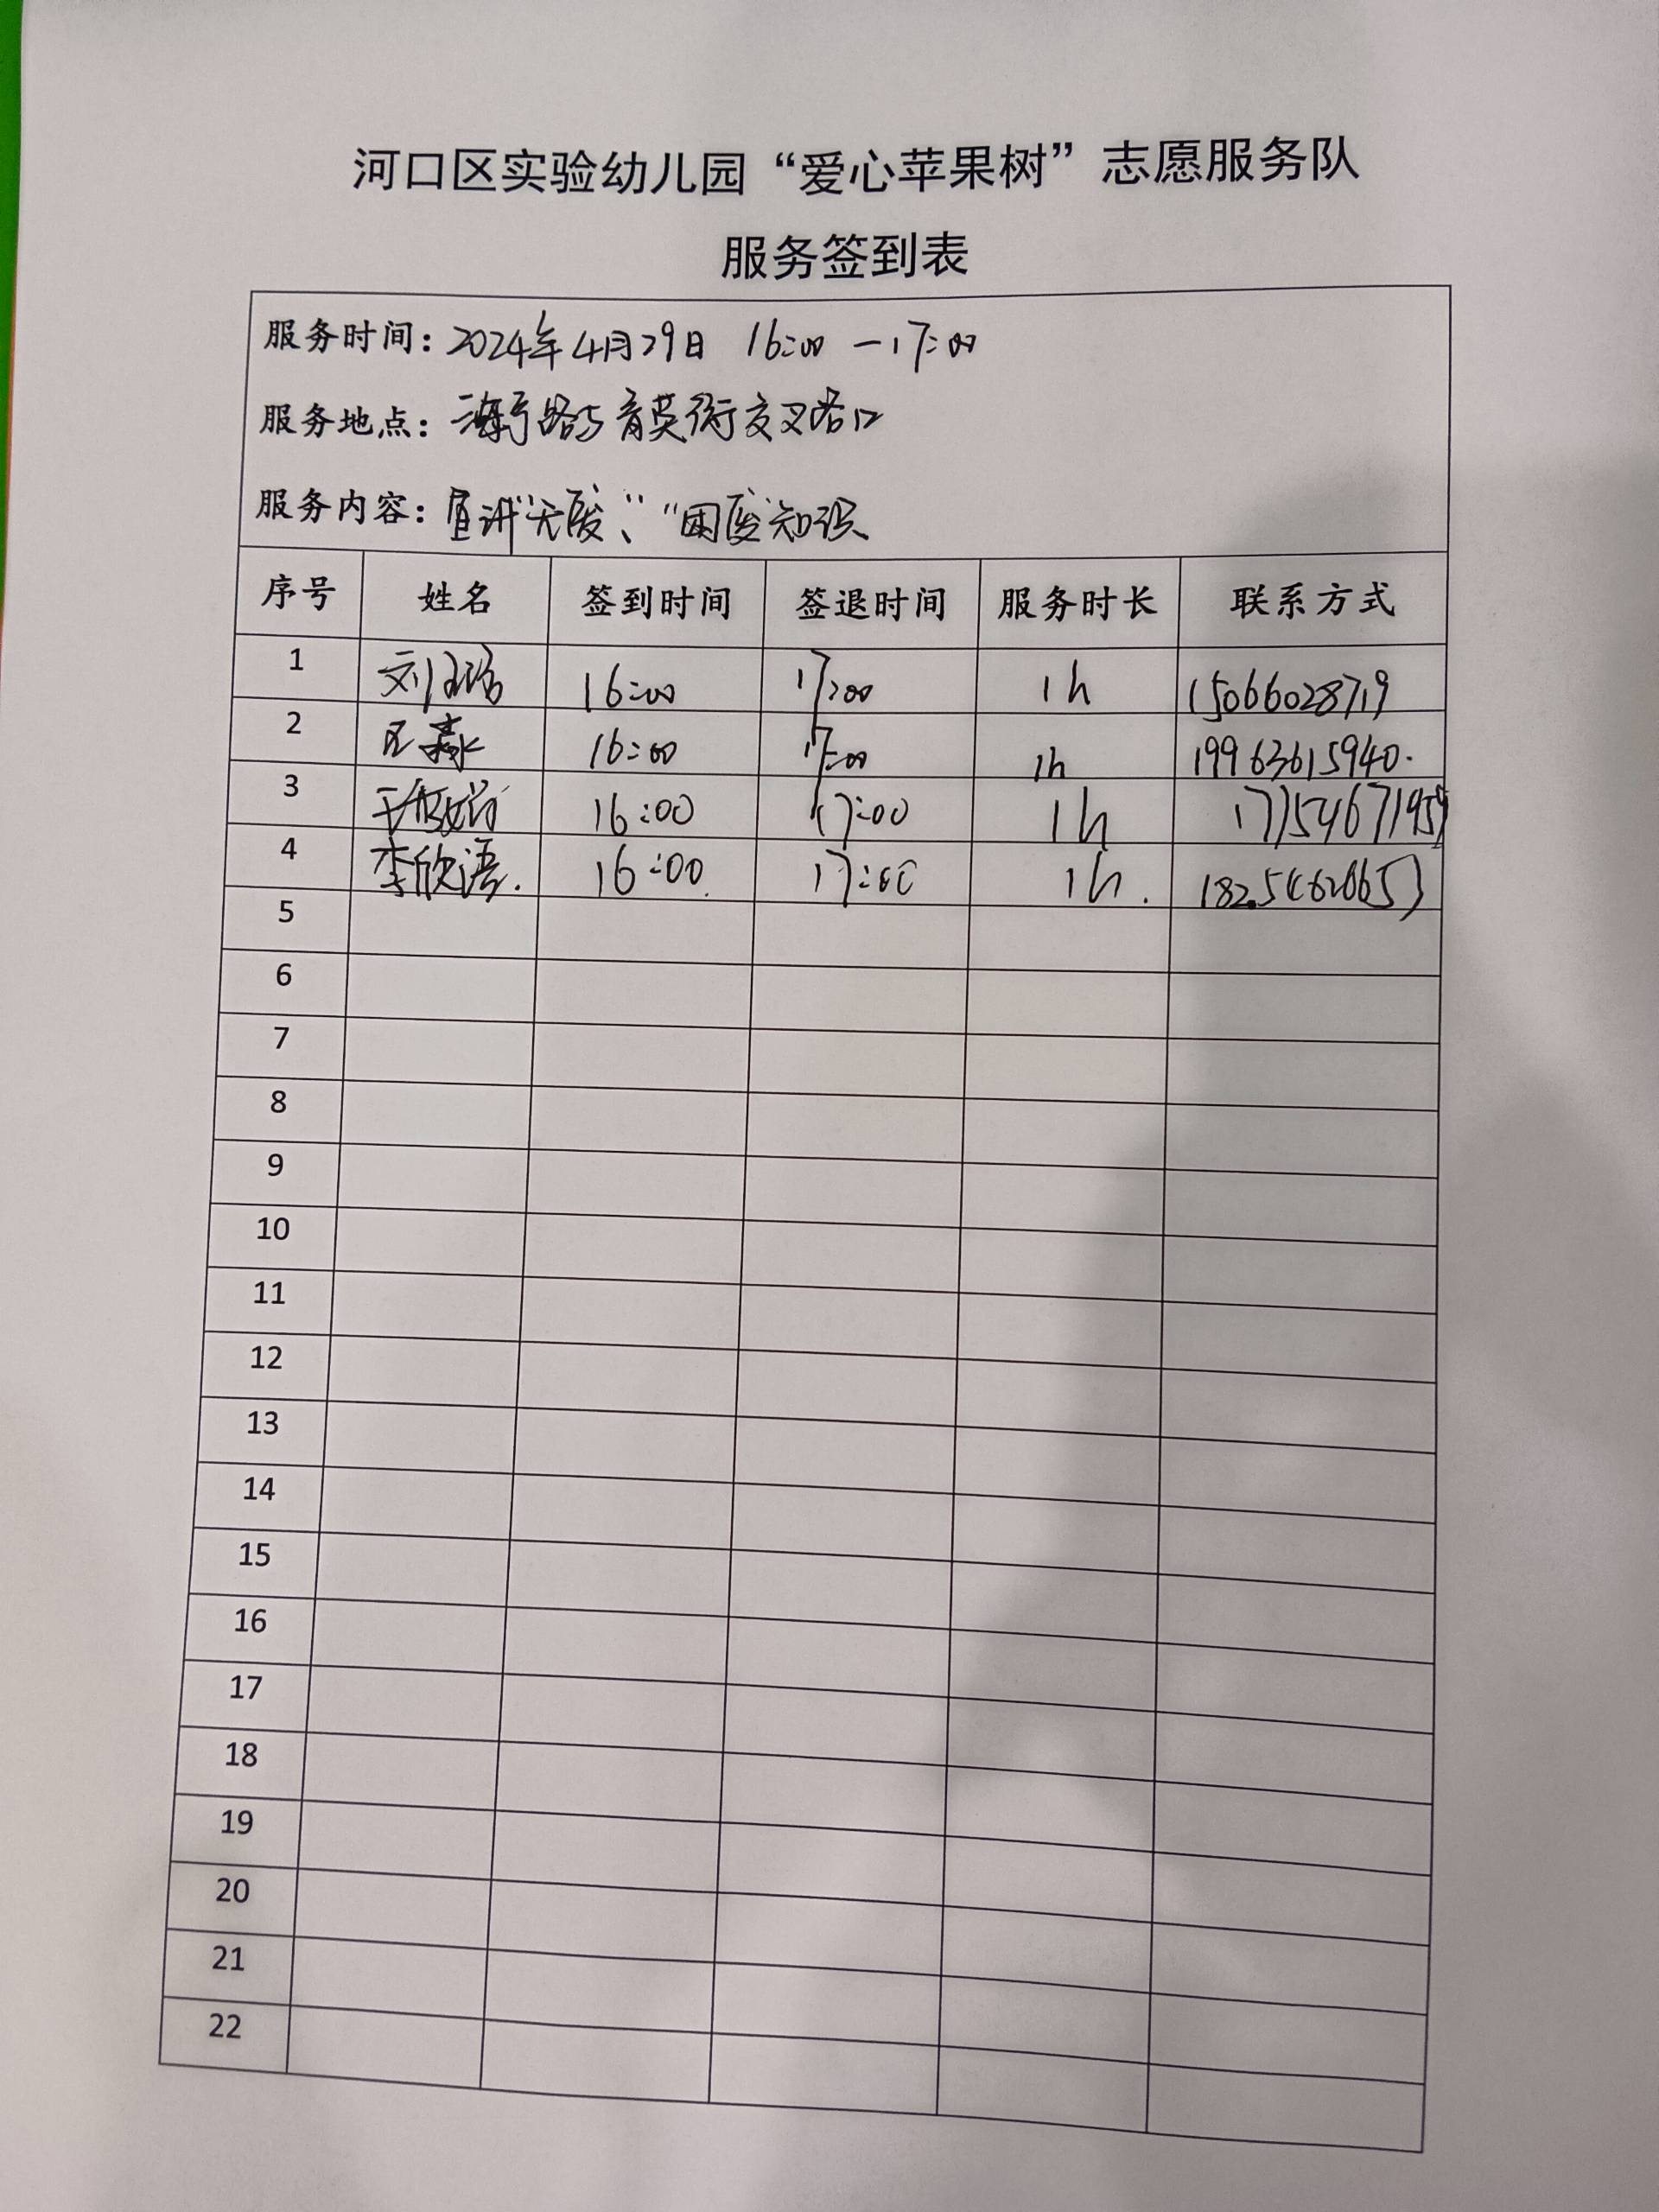 河口区实验幼儿园“爱心苹果树”志愿服务队
服务签到表
服务时间：2024年4月29日 16:00 —17:00
服务地点：海宁路与育英街交叉路口
服务内容：宣讲“无废”、“固废”知识
序号 姓名 签到时间 签退时间 服务时长 联系方式
1 16:00 17:00 1h 15066028719
2 16:00 17:00 1h 19963615940.
3 16:00 17:00 1h 17754671959
4 李欣语. 16:00. 17:00 1h.
5
6
7
8
9
10
11
12
13
14
15
16
17
18
19
20
21
22